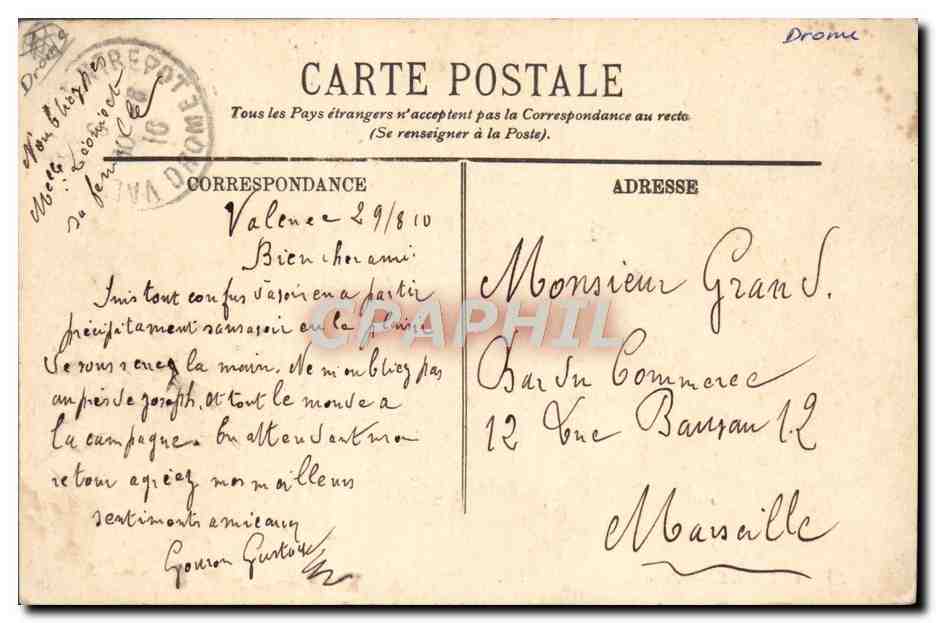 Drome
Drome
CARTE POSTALE
Tous les Pays étrangers n'acceptent pas la Correspondance au recto
(Se renseigner à la Poste).
CORRESPONDANCE
N'oubliez pas
Melle Léonie et
sa
ENTREPOT
DROME
VAL
10
Valence 29/8 10
Bien cher ami.
Suis tout confus d'avoir eu a partir
précipitament sans avoir eu le plaisir
de vous serrez la main. Ne m'oubliez pas
auprès de joseph, et tout le monde a
la campagne. En attendant mon
retour agréez mes meilleurs
sentiments amicaux
Gouron Gustave
ADRESSE
Monsieur Grand.
Bar du Commerce
12 Rue 12
Marseille
CPAPHIL